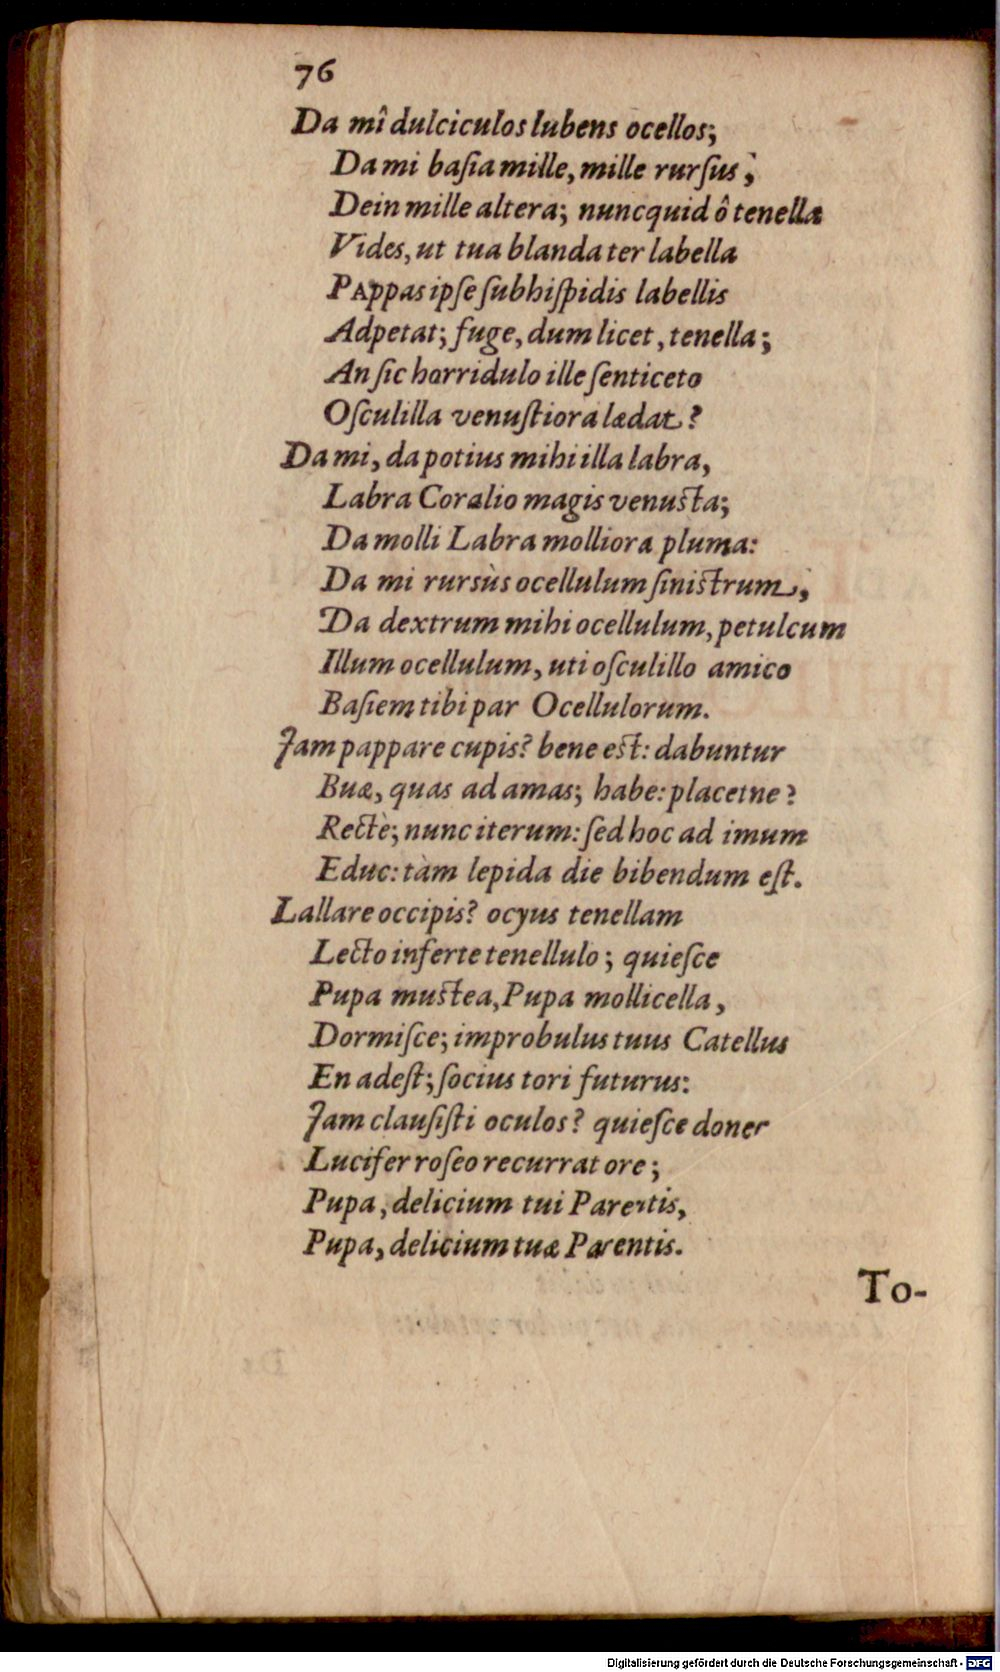 76
Da mî dulciculos lubens ocellos;
Da mi baſia mille, mille rurſus;
Dein mille altera; nuncquid ô tenella
Vides, ut tua blanda ter labella
PAppas ipſe ſubhiſpidis labellis
Adpetat; fuge, dum licet, tenella;
An ſic horridulo ille ſenticeto
Oſculilla venuſtiora lædat?
Da mi, da potius mihi illa labra,
Labra Coralio magis venusta;
Da molli Labra molliora pluma:
Da mi rursùs ocellulum ſinistrum,
Da dextrum mihi ocellulum, petulcum
Illum ocellulum, uti oſculillo amico
Baſiem tibi par Ocellulorum.
Jam pappare cupis? bene est: dabuntur
Buæ, quas adamas; habe: placetne?
Rectè; nunc iterum: ſed hoc ad imum
Educ: tàm lepida die bibendum eſt.
Lallare occipis? ocyus tenellam
Lecto inferte tenellulo; quieſce
Pupa mustea, Pupa mollicella,
Dormiſce; improbulus tuus Catellus
En adeſt; ſocius tori futurus:
Jam clauſiſti oculos? quieſce donec
Lucifer roſeo recurrat ore;
Pupa, delicium tui Parentis,
Pupa, delicium tuæ Parentis.
To-
Digitalisierung gefördert durch die Deutsche Forschungsgemeinschaft - DFG